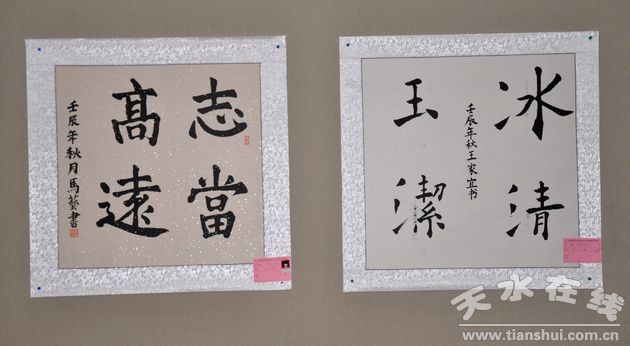 志當
高遠
壬辰年秋月馬藝書
冰清
玉潔
壬辰年秋王家宜书
天水在线
www.tianshui.com.cn